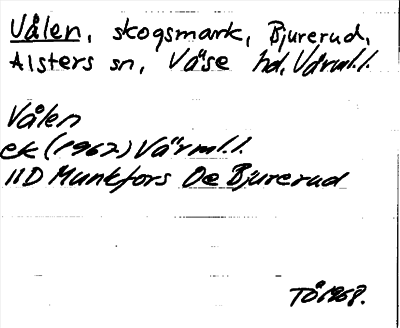 Vålen, skogsmark, Bjurerud,
Alsters sn, Väse hd, Värml.l.
Vålen
ek (1962) Värml.l.
11D Munkfors Oe Bjurerud
TÖ 1968.